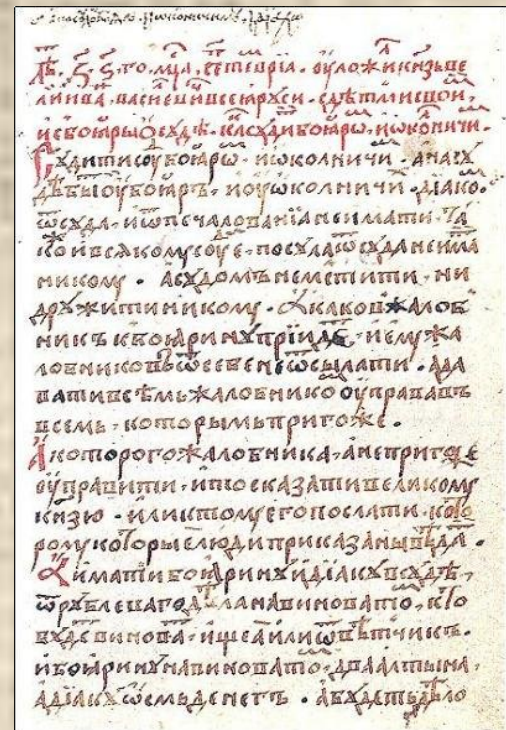 лѣ҃. ҂ѕ҃. ѕ҃. го. мц҃а, септеврїа. оуложиⷧ кнѧзь ве
ликиⷨ ива. василевиⷱ всеѧ рꙋси. с дѣтми свои,
и с боѧры ѡ сꙋдѣ. каⷦ сꙋди боѧрѡ, и ѡколничи.
Сꙋдити сⷣꙋ боѧрѡ. и ѡколничи. а на сꙋ
дѣ быти оу боѧръ. и оу ѡколничи. дїако.
ѿ сꙋда. и ѿ печалованїа не имати. та
кои всѧкомꙋ сꙋⷣе. посꙋла ѿ сꙋда не има
никомꙋ. а сꙋдомъ не мстити. ни
дрꙋжити никомꙋ. жалоб
никъ к боѧринꙋ прїиде. и емꙋ жа
лобниковъ ѿ себе не ѿсылати. а да
вати всѣмъ жалобнико оуправа въ
всемь. которымь пригоже.
А которого жалобника. а не пригоже
оуправити. и то сказати великомꙋ
кнѧзю. или к томꙋ его послати. кото
ромꙋ которые люди приказаны вѣда.
А имати боѧринꙋ и дїакꙋ в сꙋдѣ,
ѿ рꙋблеваго дѣла на виновато. кто
бꙋде винова. ищеа или ѿвѣтчикъ.
и боѧринꙋ на виновато. два алтына.
а дїакꙋ ѡсмь денегъ. а бꙋдетъ дѣло